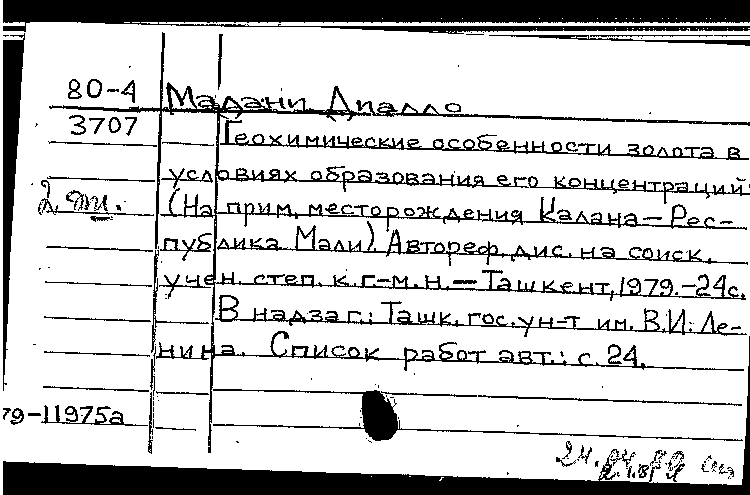 80-4 Мадани Диалло
3707 Геохимические особенности золота в
условиях образования его концентраций
2 эт. (На прим. месторождения Калана — Рес-
публика Мали) Автореф. дис. на соиск.
учен. степ. к.г-м.н. — Ташкент, 1979. - 24с.
В надзаг.: Ташк. гос. ун-т им. В.И. Ле-
нина. Список работ авт.: с. 24.
79-11975а